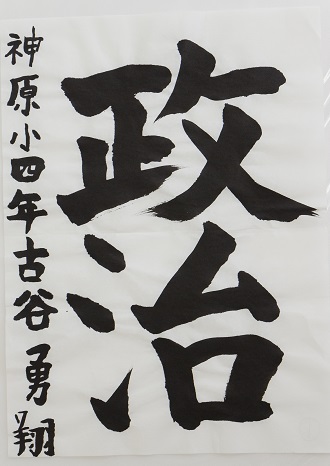 政治
神原小四年古谷勇翔